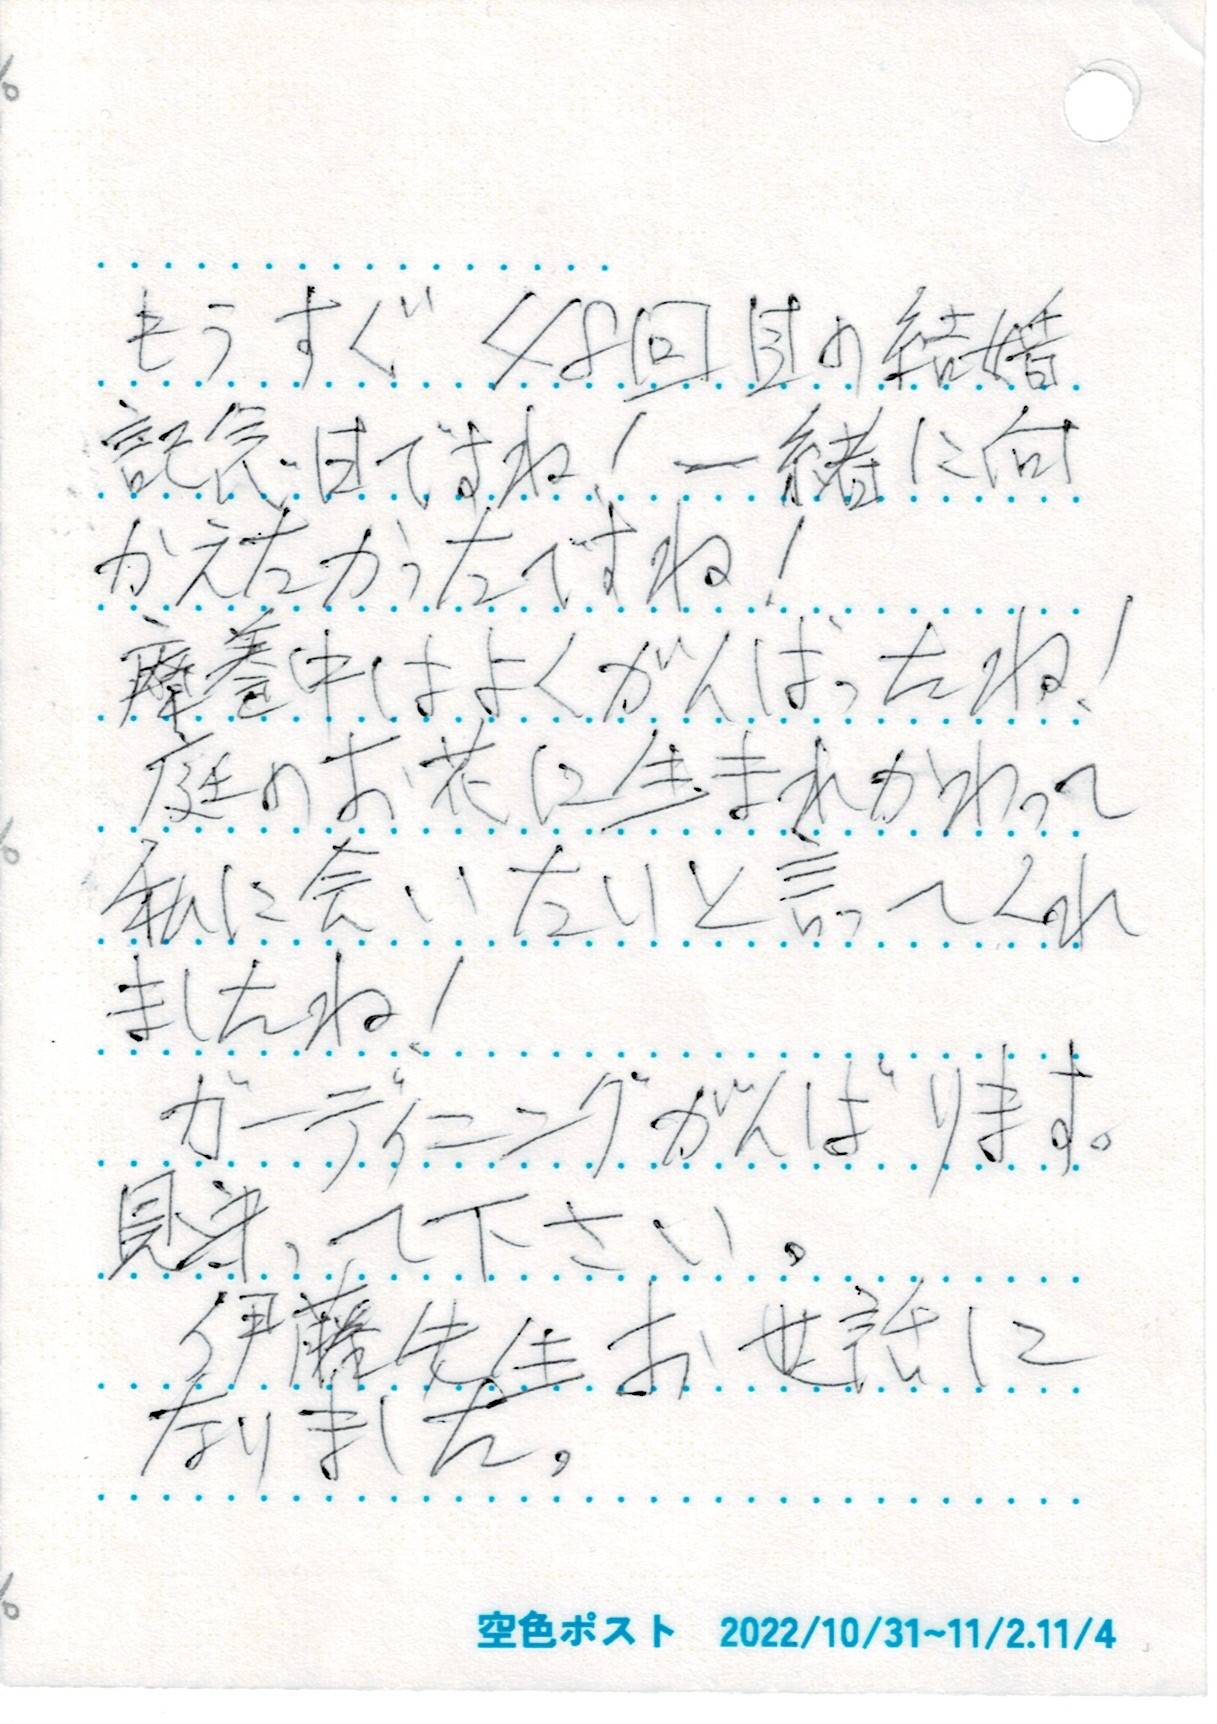 もうすぐ 48回目の結婚
記念日ですね！一緒に向
かえたかったですね！
療養中はよくがんばったね！
庭のお花に生まれかわって
私に会いたいと言ってくれ
ましたね！
ガーディニングがんばります。
見守って下さい。
伊藤先生お世話に
なりました。
空色ポスト 2022/10/31~11/2.11/4